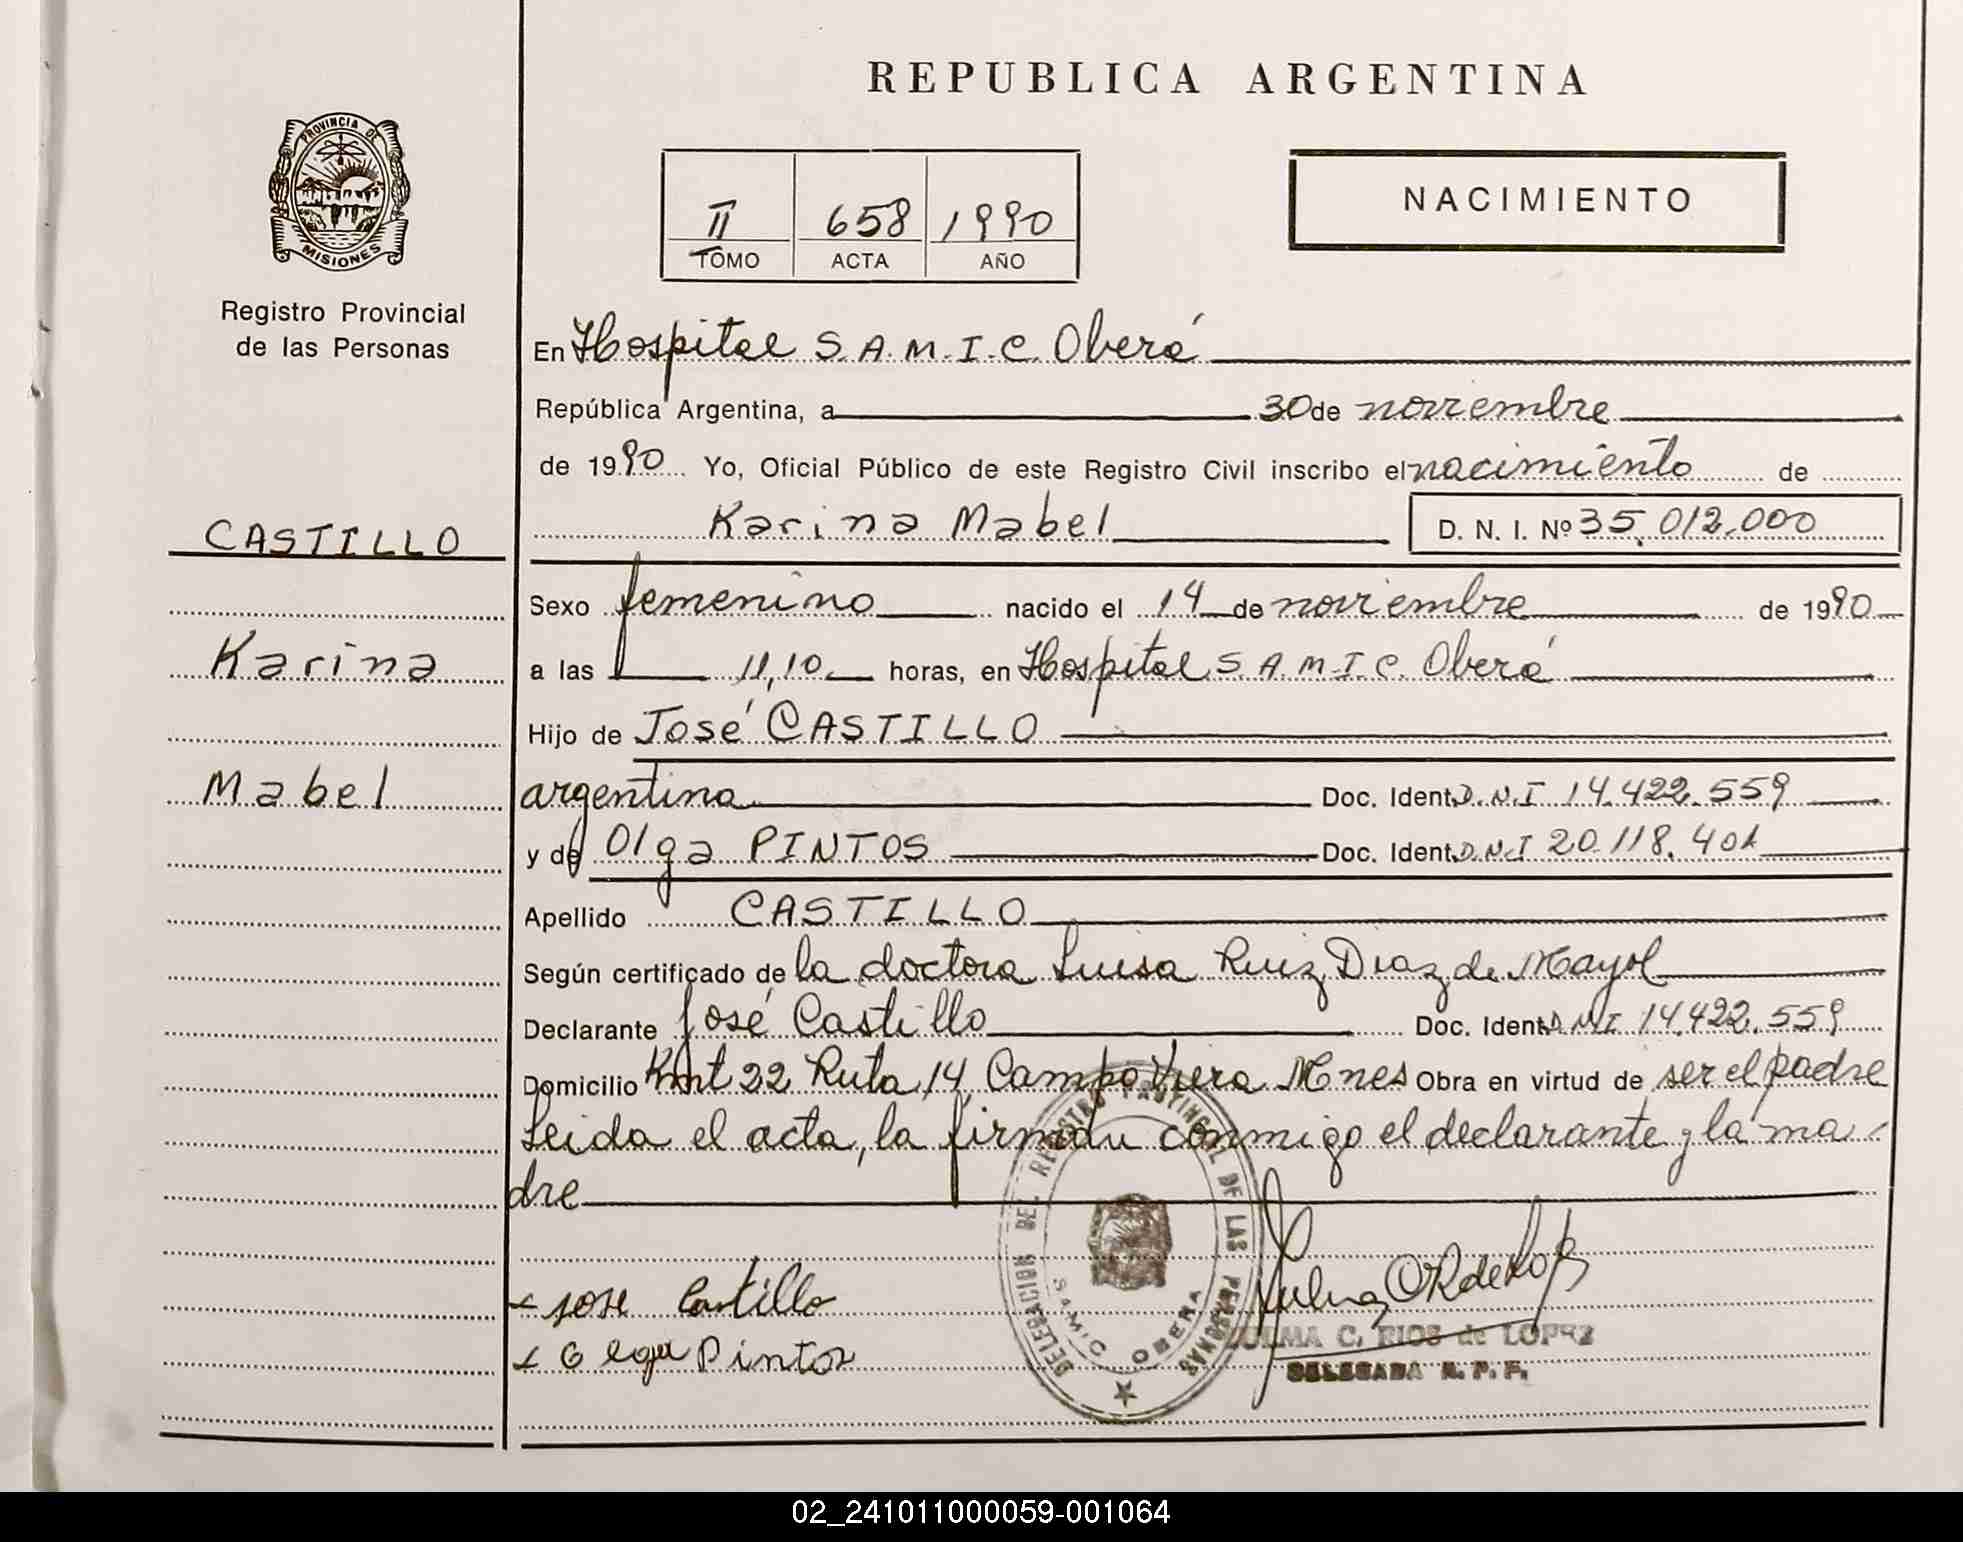 REPUBLICA ARGENTINA
PROVINCIA DE
MISIONES
Registro Provincial
de las Personas
II 658 1990
TOMO ACTA AÑO
NACIMIENTO
CASTILLO
Karina
Mabel
En Hospital S.A.M.I.C. Oberá
República Argentina, a 30 de noviembre
de 1990 Yo, Oficial Público de este Registro Civil inscribo el nacimiento de
Karina Mabel D. N. I. Nº 35.012.000
Sexo femenino nacido el 14 de noviembre de 1990
a las 11,10 horas, en Hospital S.A.M.I.C. Oberá
Hijo de José CASTILLO
argentina Doc. Ident. D.N.I 14.422.559
y de Olga PINTOS Doc. Ident. D.N.I 20.118.401
Apellido CASTILLO
Según certificado de la doctora Luisa Ruiz Diaz de Mayol
Declarante José Castillo Doc. Ident. D.N.I 14.422.559
Domicilio Kmt 22 Ruta 14 Campo Viera Mnes Obra en virtud de ser el padre
Leida el acta, la firman conmigo el declarante y la ma-
dre
DELEGACION DEL REGISTRO PROVINCIAL DE LAS PERSONAS
SAMIC OBERA
x jose Castillo
x Olga Pintos
ZULMA C. RIOS de LOPEZ
DELEGADA R. P. P.
02_241011000059-001064